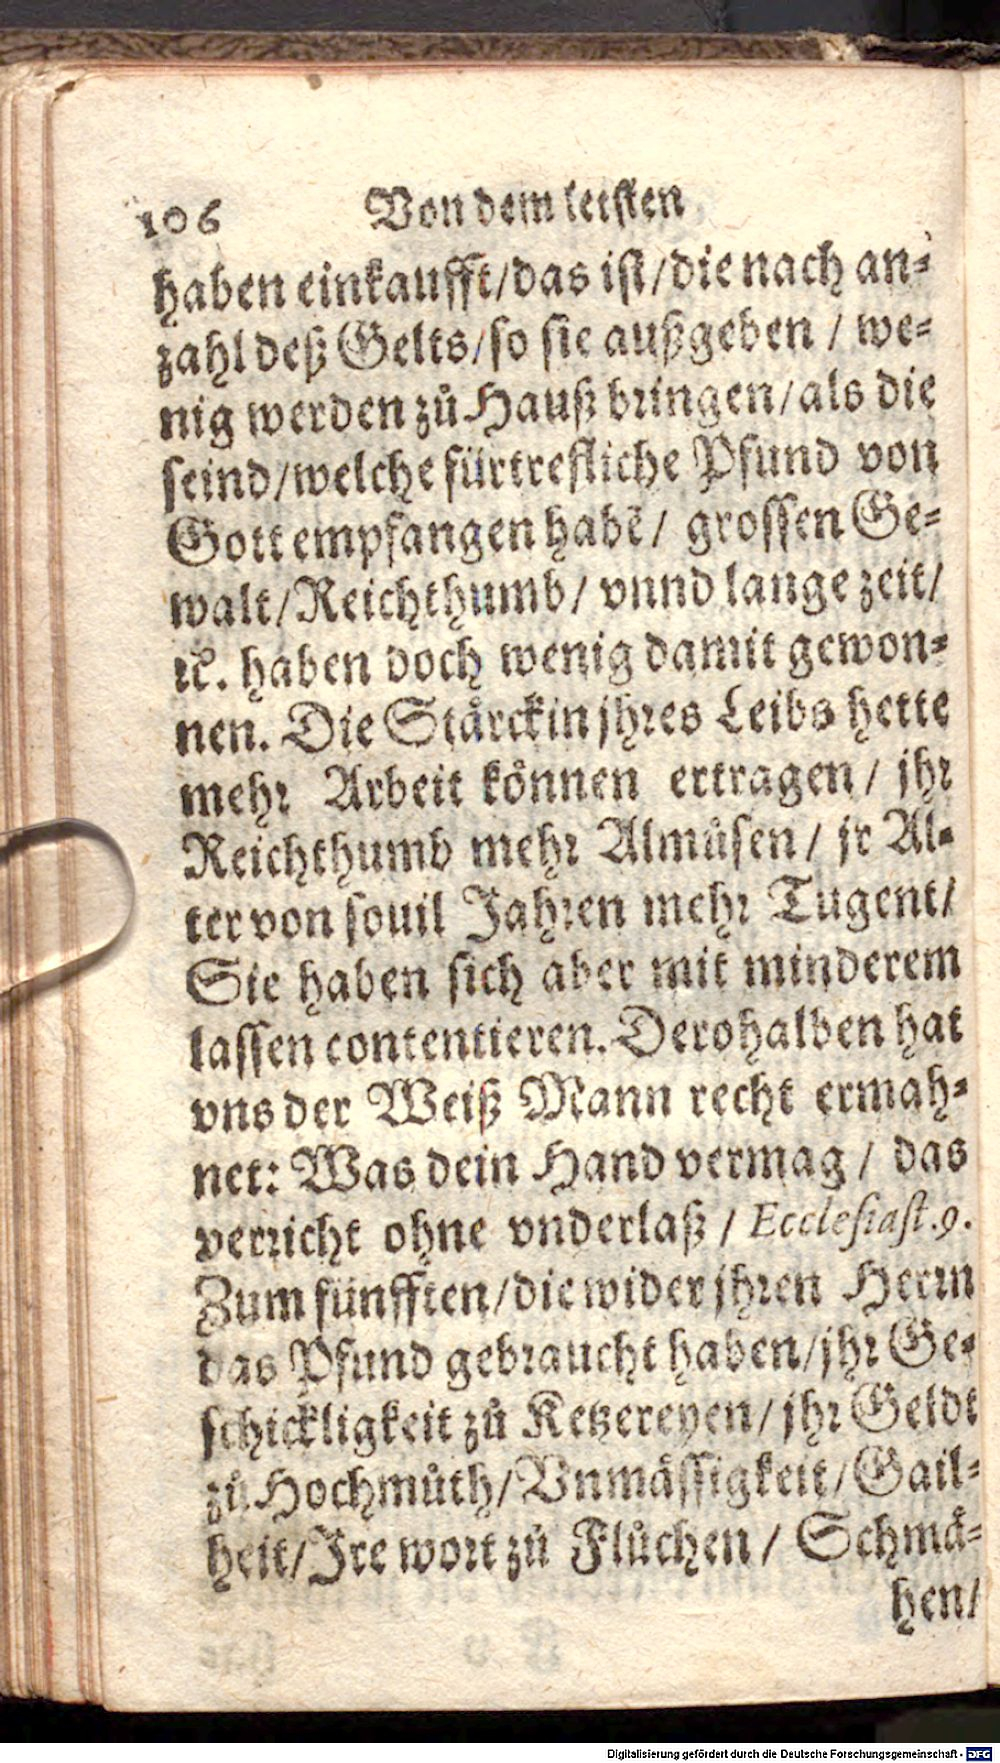 106 Von dem letsten
haben einkaufft/das ist/die nach an-
zahl deß Gelts/so sie außgeben / we-
nig werden zů Hauß bringen/als die
seind/welche fürtrefliche Pfund von
Gott empfangen habẽ/ grossen Ge-
walt/Reichthumb/ vnnd lange zeit/
ꝛc. haben doch wenig damit gewon-
nen. Die Stärckin jhres Leibs hette
mehr Arbeit können ertragen/ jhr
Reichthumb mehr Almůsen/ jr Al-
ter von souil Jahren mehr Tugent/
Sie haben sich aber mit minderem
lassen contentieren. Derohalben hat
vns der Weiß Mann recht ermah-
net: Was dein Hand vermag / das
verricht ohne vnderlaß / Ecclesiast.9.
Zum fünfften/die wider jhren Herrn
das Pfund gebraucht haben/jhr Ge-
schickligkeit zů Ketzereyen/ jhr Geldt
zů Hochmůth/Vnmässigkeit/Gail-
heit/Ire wort zů Flůchen/ Schmä-
hen/
Digitalisierung gefördert durch die Deutsche Forschungsgemeinschaft - DFG